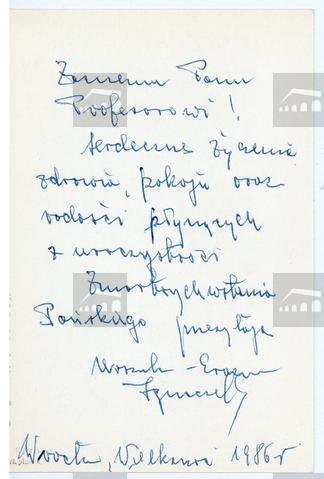 Panu
Profesorowi!
serdeczne życzenia
zdrowia, pokoju oraz
radości płynących
z uroczystości
Zmartwychwstania
Pańskiego przesyła
Wrocław, Wielkanoc 1986 r